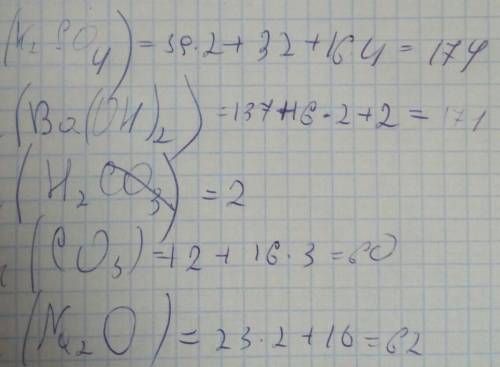 (K₂SO₄) = 39·2+32+16·4 = 174
(Ba(OH)₂) = 137+16·2+2 = 171
(H₂CO₃) = 2
(CO₃) = 12+16·3=60
(Na₂O) = 23·2+16=62